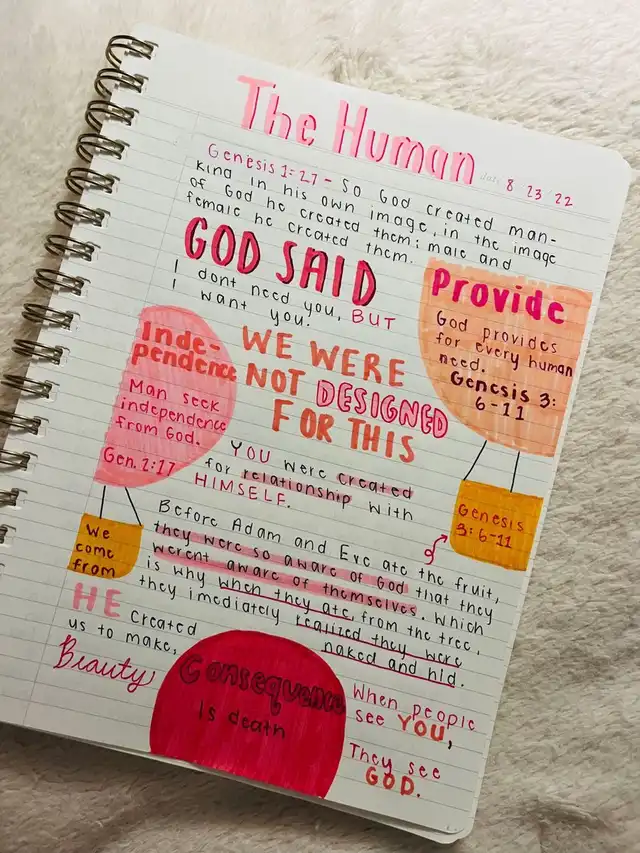 The Human
date 8 23 22
Genesis 1:27 - So God created man-
kind in his own image, in the image
of God he created them; male and
female he created them.
GOD SAID
I dont need you, BUT
I want you.
Provide
God provides
for every human
need.
Genesis 3:
6-11
Genesis
3:6-11
Inde-
pendence
Man seek
independence
from God.
Gen. 2:17
We
come
from
WE WERE
NOT DESIGNED
FOR THIS
YOU were created
for relationship with
HIMSELF.
Before Adam and Eve ate the fruit,
they were so aware of God that they
werent aware of themselves. Which
is why when they ate, from the tree,
they imediately realized they were
naked and hid.
HE created
us to make,
Beauty
Consequence
is death
When people
see YOU,
They see
GOD.